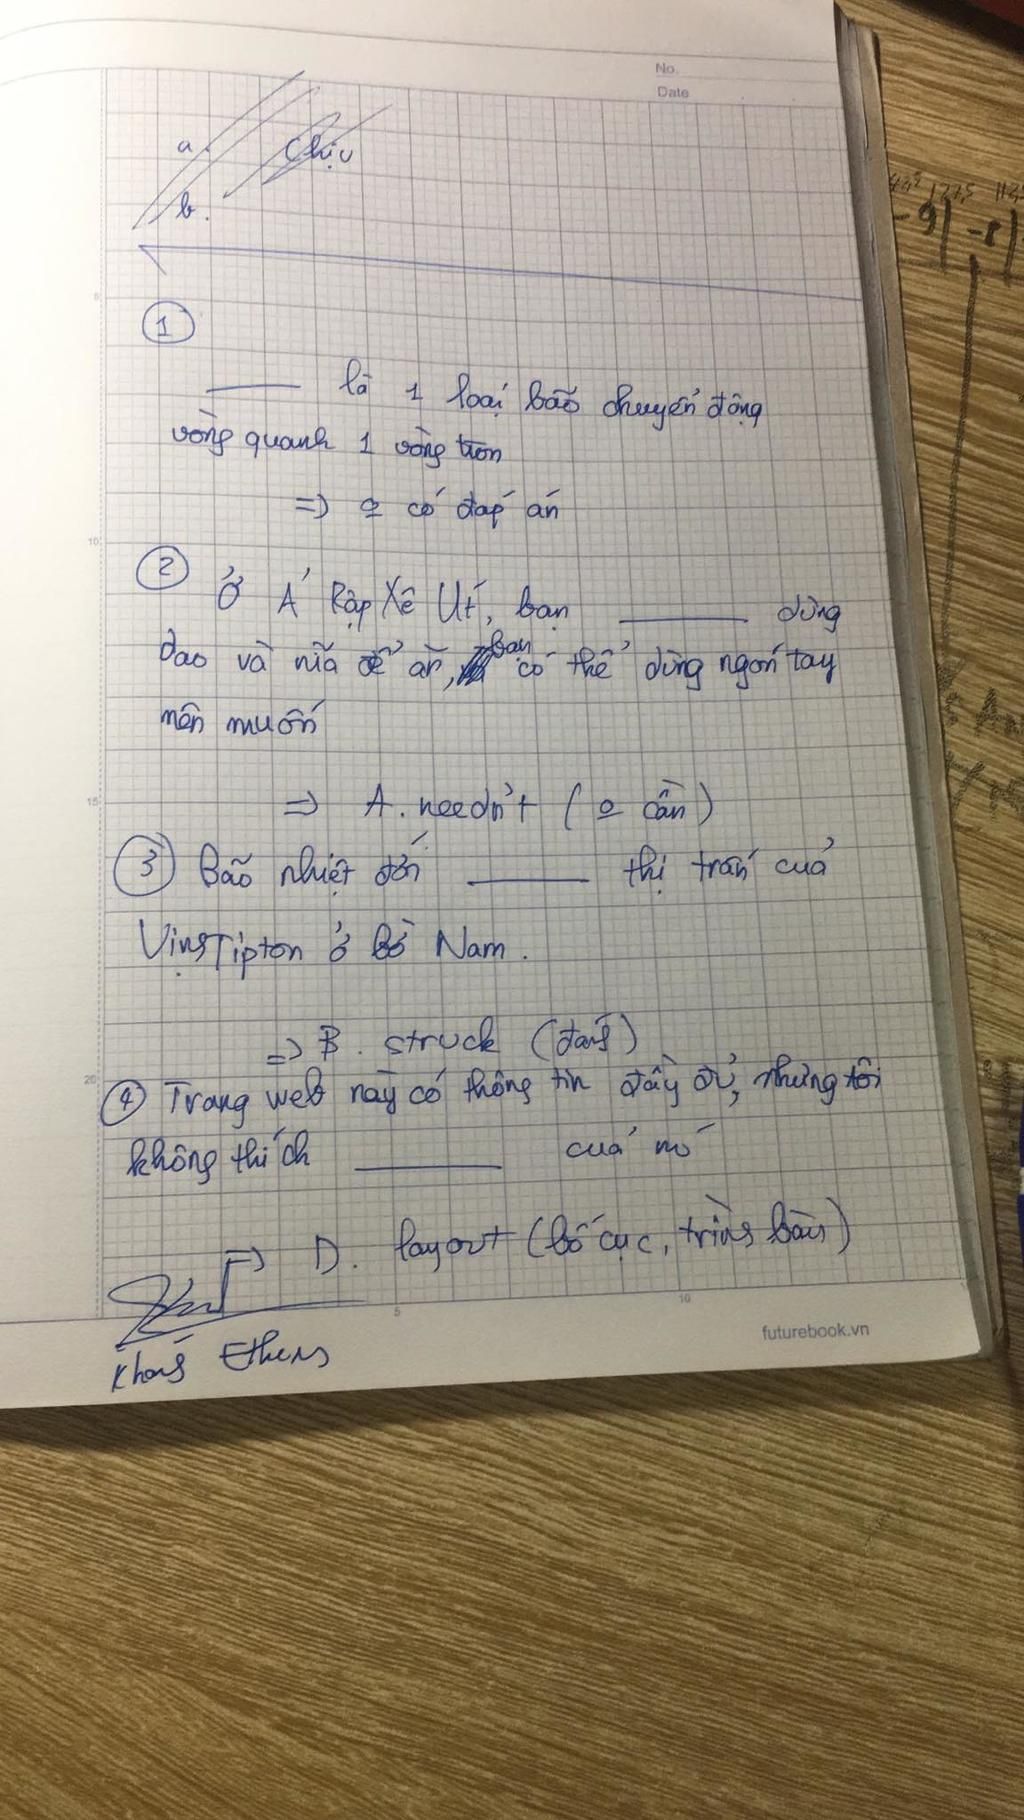 No.
Date
a.
Chịu
b.
1
là 1 loại bão chuyển động
vòng quanh 1 vòng tròn
=> o có đáp án
2
Ở Ả Rập Xê Út, bạn ______ dùng
dao và nĩa để ăn, bạn có thể dùng ngón tay
nên muốn
=> A. needn't (o cần)
3 Bão nhiệt đới ______ thị trấn của
Tipton ở Bờ Nam.
=> B. struck (đánh)
4 Trang web này có thông tin đầy đủ, nhưng tôi
không thích ______ của nó
=> D. layout (bố cục, trình bày)
5
10
15
20
5
10
futurebook.vn